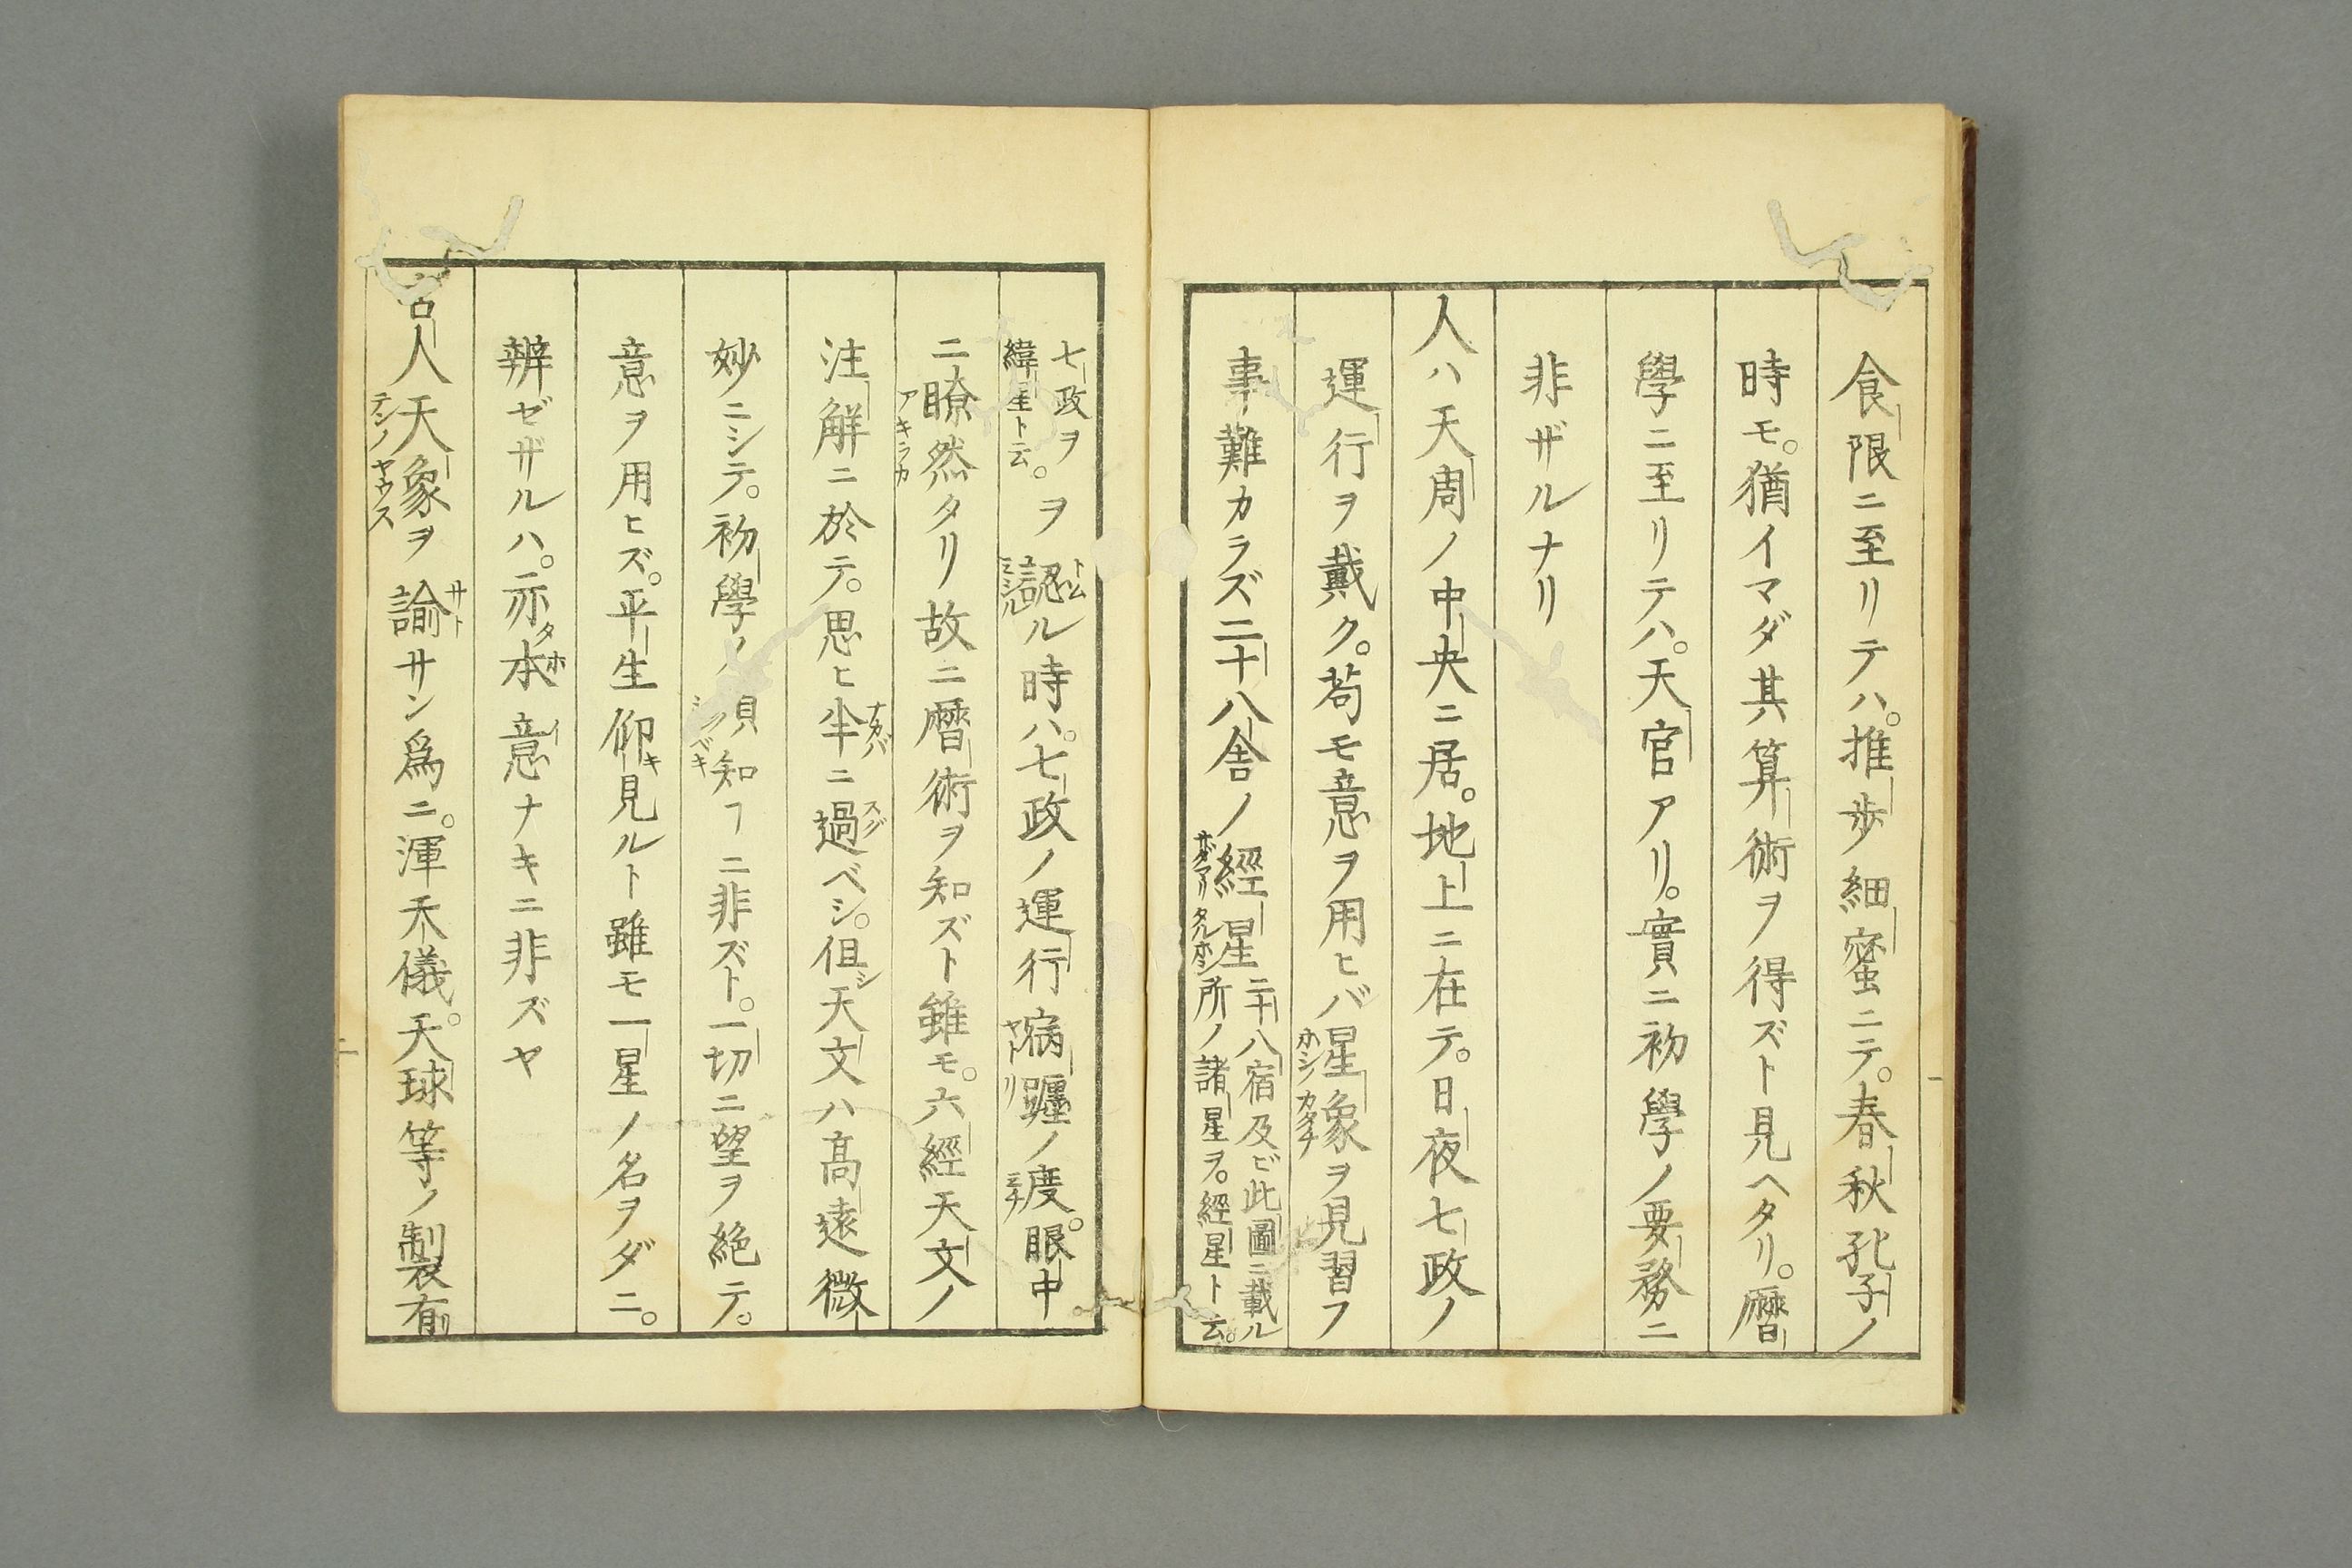 食限ニ至リテハ。推歩細蜜ニテ。春秋孔子ノ
時モ。猶イマダ其算術ヲ得ズト見ヘタリ。暦
學ニ至リテハ。天官アリ。實ニ初學ノ要務ニ
非ザルナリ
人ハ天周ノ中央ニ居。地上ニ在テ。日夜七政ノ
運行ヲ戴ク。苟モ意ヲ用ヒバ星象ヲ見習フ
ホシノカタチ
事難カラズ二十八舎ノ經星
二十八宿及ビ此圖ニ載ル
所ノ諸星ヲ。經星ト云。
七政ヲ
緯星ト云。
ヲ認ル時ハ。七政ノ運行㾈躔ノ度。眼中
ヤトリ
ミチ
ニ瞭然タリ故ニ暦術ヲ知ズト雖モ。六經天文ノ
アキラカ
注解ニ於テ。思ヒ半ニ過ベシ。但シ天文ハ高遠微
ナカバ
スグ
妙ニシテ。初學ノ須知ヿニ非ズト。一切ニ望ヲ絶テ。
ベキ
意ヲ用ヒズ。平生仰キ見ルト雖モ一星ノ名ヲダニ。
辨ゼザルハ。亦タ本意ナキニ非ズヤ
ホイ
古人天象ヲ諭サン爲ニ。渾天儀。天球等ノ製有リ
テンノヤウス
サト